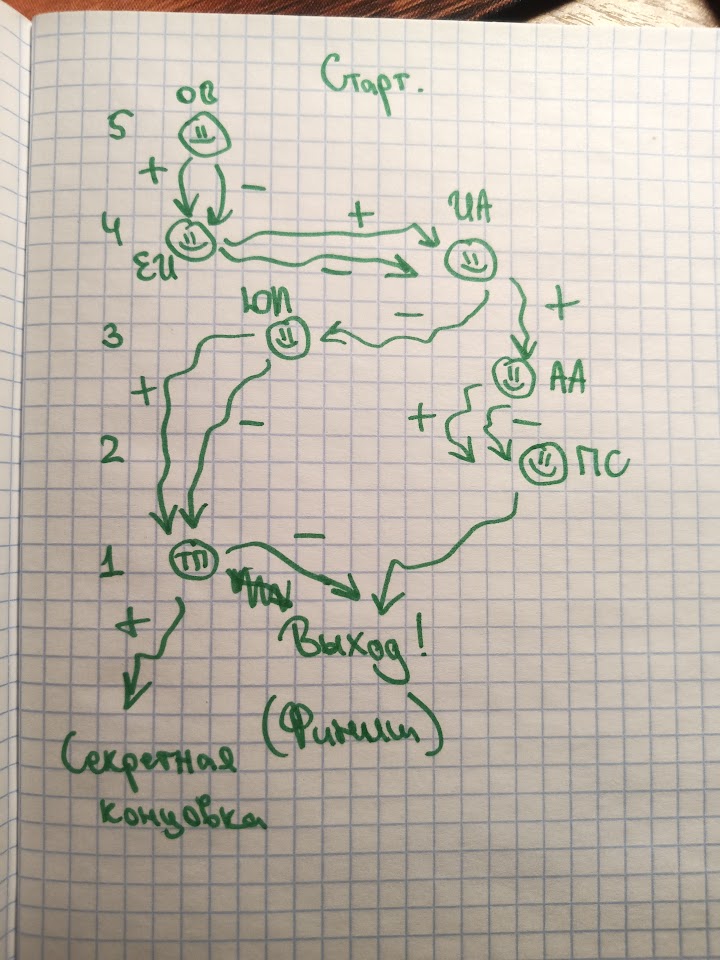 Старт.
ОВ
5
+ −
4
ИА
+
ЕИ
−
ЮП
−
+
3
+
АА
+ −
−
2
ПС
1
ТП
−
+
Выход!
(Финиш)
Секретная
концовка